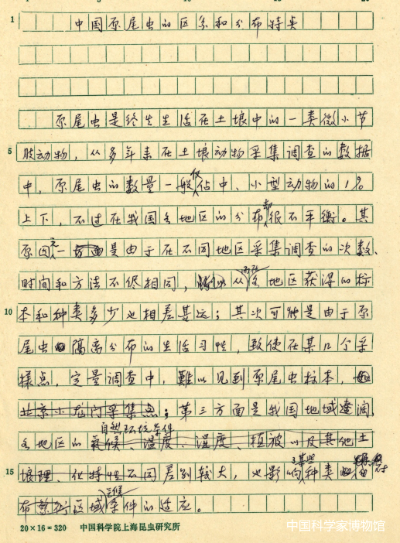 中国原尾虫的区系和分布特点
原尾虫是终生生活在土壤中的一类微小节
5 肢动物，从多年来在土壤动物采集调查的数据
中，原尾虫的数量一般仅佔中、小型动物的1%
上下，不过在我国各地区的分布却很不平衡。其
原因之一是由于在不同地区采集调查的次数、
时间和方法不尽相同，从各地区获得的标
10 本和种类多少也相差甚远；其次可能是由于原
尾虫隔离分布的生活习性，致使在某几个采
样点，定量调查中，难以见到原尾虫标本，
北京小龙门采集点；第三方面是我国地域辽阔
自然环境条件
各地区的气候、温度、湿度、植被以及其他土
15 壤理、化特性不同差别较大，也影响种类
区域条件的适应。
20×16=320 中国科学院上海昆虫研究所
中国科学家博物馆